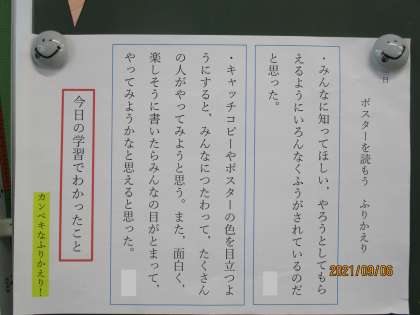 日
ポスターを読もう　ふりかえり
・みんなに知ってほしい、やろうとしてもら
えるようにいろんなくふうがされているのだ
と思った。
・キャッチコピーやポスターの色を目立つよ
うにすると、みんなにつたわって、たくさん
の人がやってみようと思う。また、面白く、
楽しそうに書いたらみんなの目がとまって、
やってみようかなと思えると思った。
今日の学習でわかったこと
カンペキなふりかえり！
2021/09/06